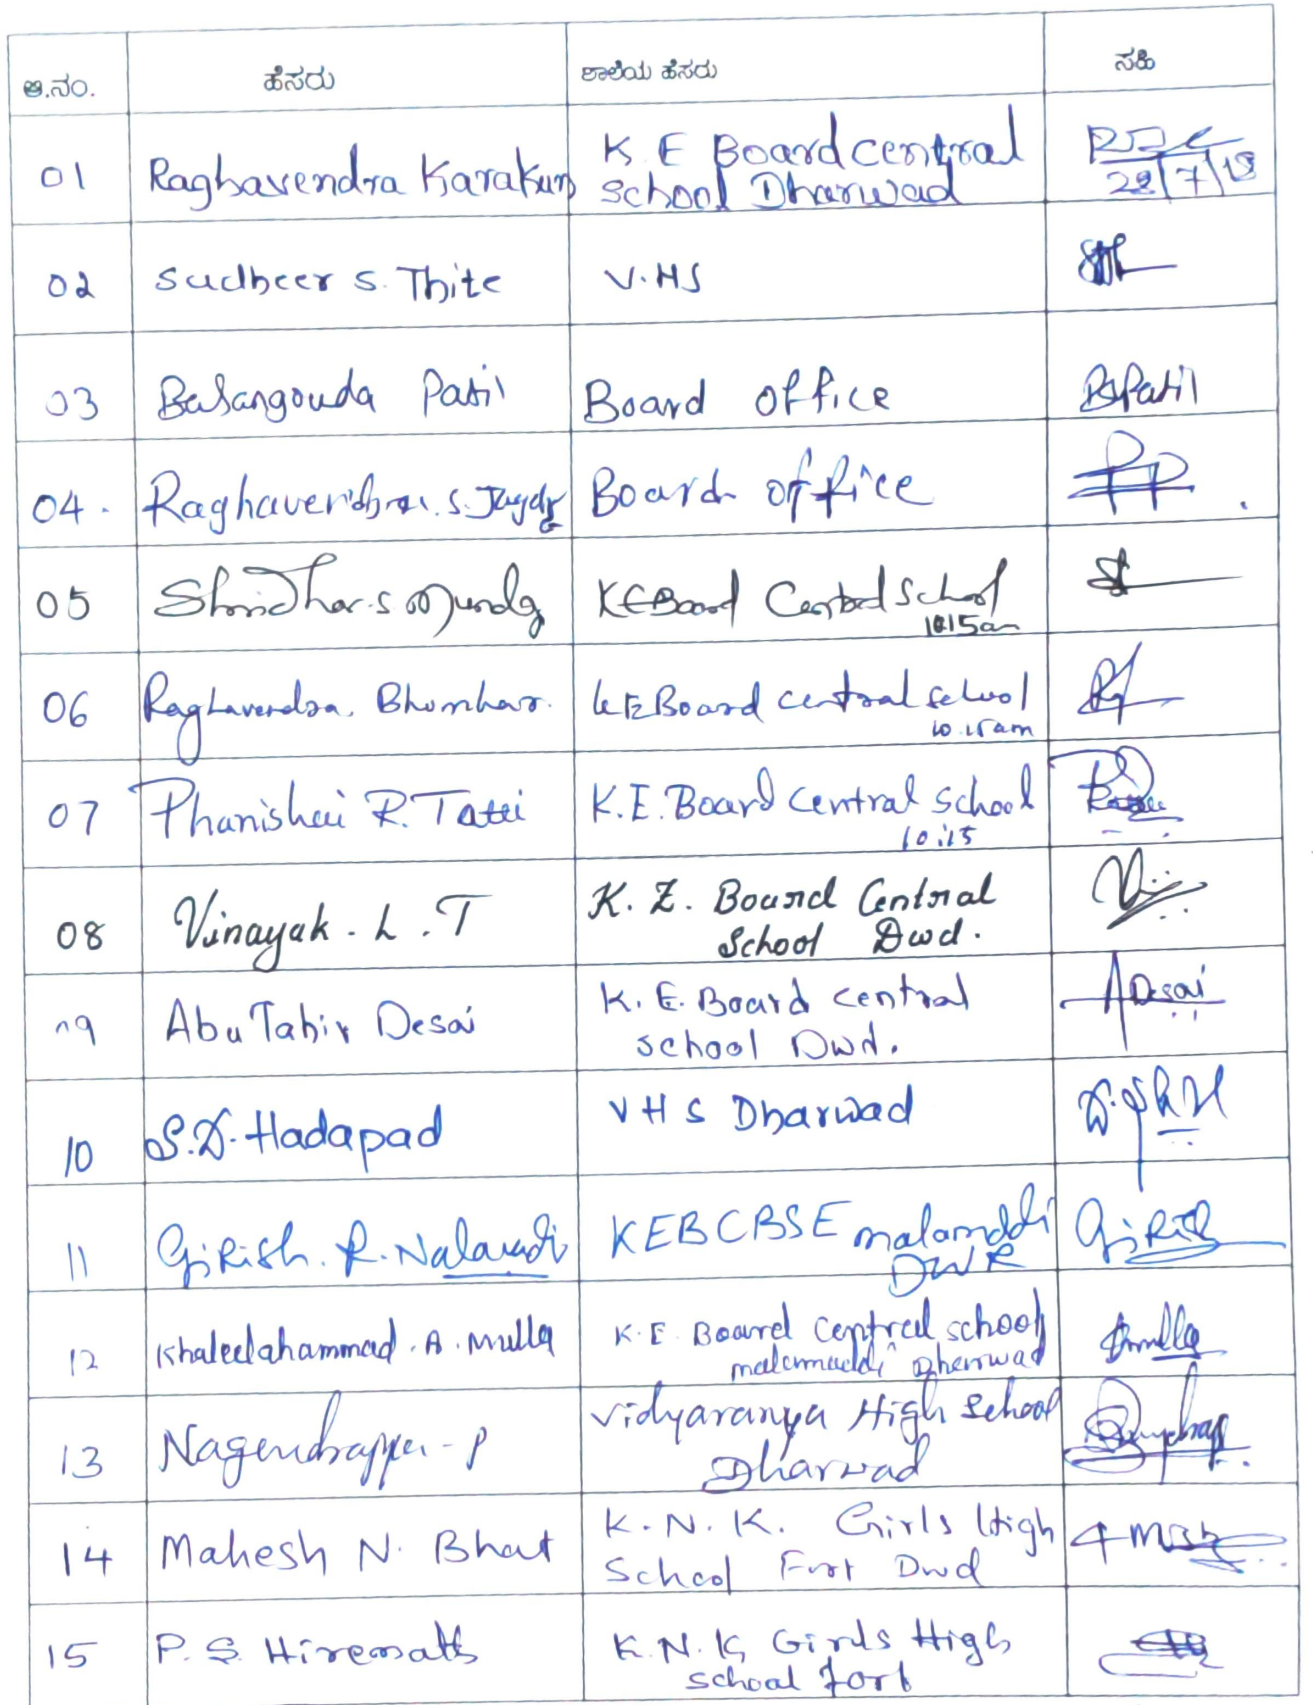 ಅ.ನಂ. ಹೆಸರು ಶಾಲೆಯ ಹೆಸರು ಸಹಿ
01 Raghavendra Karakun K E Board central
School Dharwad
7/19
02 Sudheer S. Thite V.HS
03 Basangouda Patil Board office BPatil
04. Raghavendra. S. Board office
05 Shridhar.S KEBoard Central School
10:15am
06 Raghavendra. KE Board central School
10.15am
07 R. Tatti K.E.Board Central School
10:15
08 Vinayak. L. T K. E. Board Central
School Dwd.
09 Abu Tahir Desai K. E. Board central
school Dwd.
ADesai
10 S.D. Hadapad VHS Dharwad
11 Girish. R. Nalavadi KEB CBSE malamddi
DWR
Girish
12 Khaleelahammad. A. Mulla K.E. Board Central school
malamaddi Dharwad
13 Nagendrappa - P Vidyaranya High School
Dharwad
14 Mahesh N. Bhat K.N.K. Girls High
School Fort Dwd
15 P.S. Hiremath K.N.K Girls High
school fort